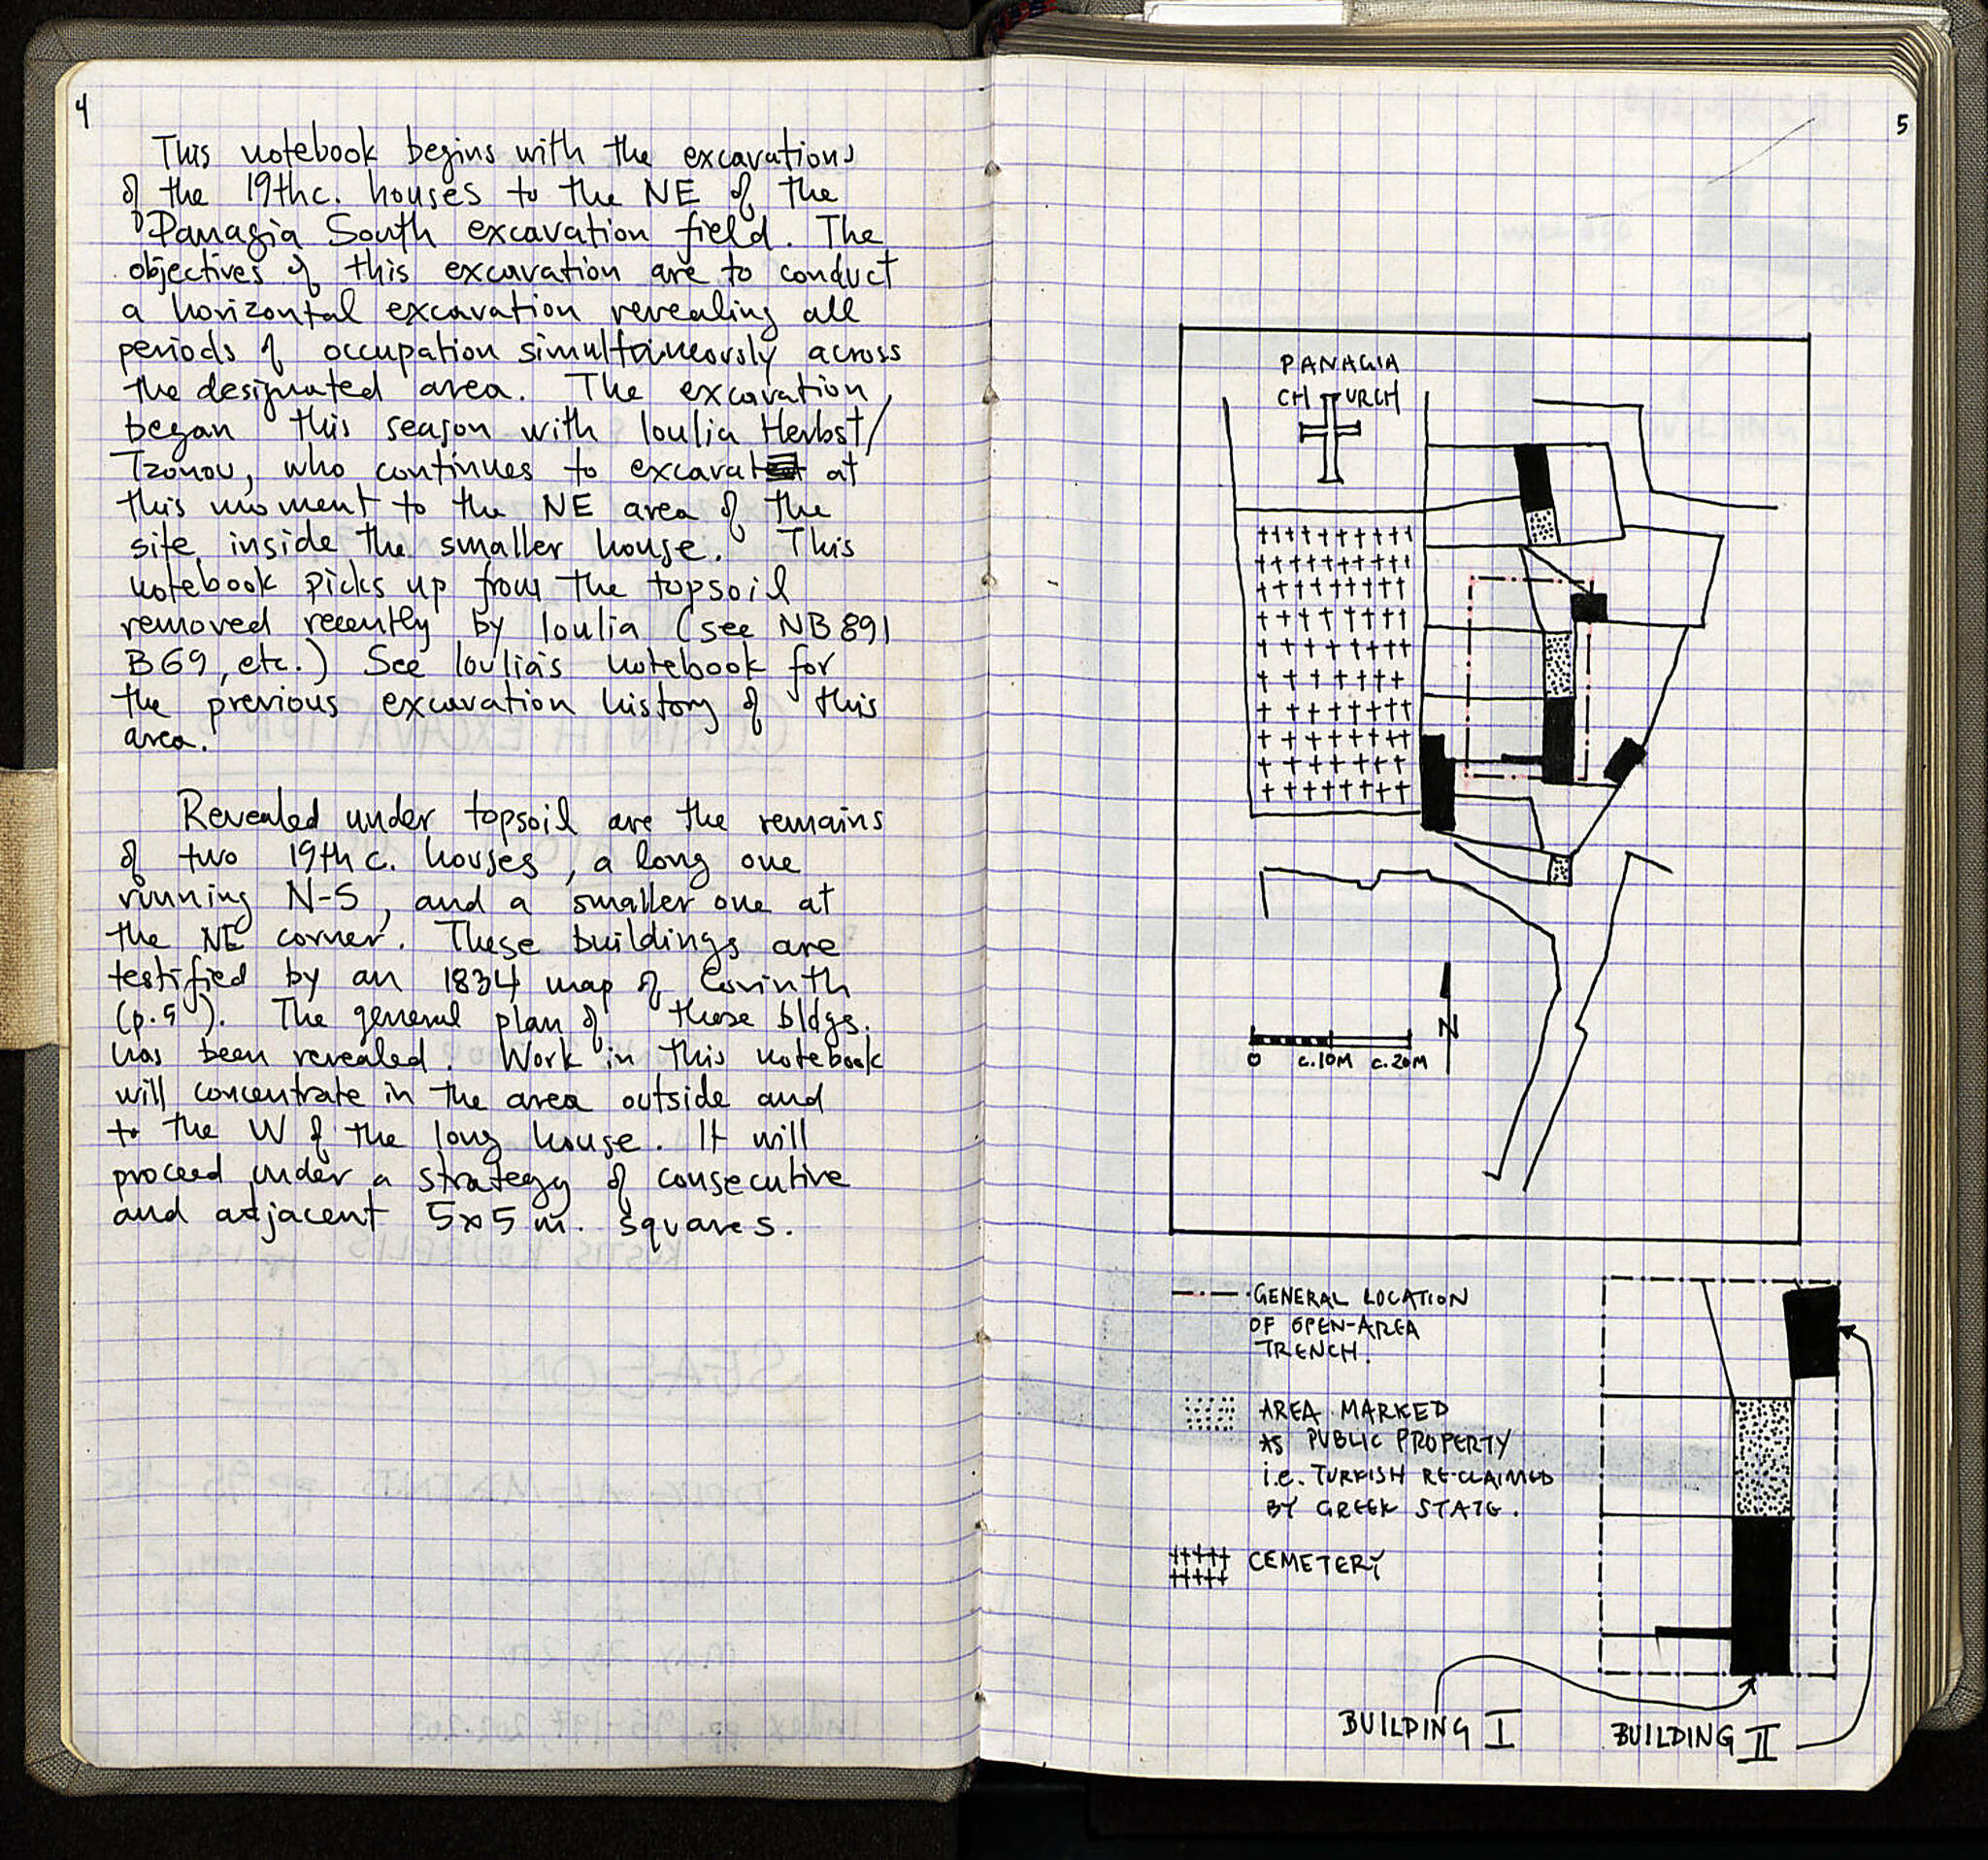 4
This notebook begins with the excavations
of the 19thc. houses to the NE of the
Panagia South excavation field. The
objectives of this excavation are to conduct
a horizontal excavation revealing all
periods of occupation simultaineously across
the designated area. The excavation
began this season with Ioulia Herbst/
Tzonou, who continues to excavate at
this moment to the NE area of the
site, inside the smaller house. This
notebook picks up from the topsoil
removed recently by Ioulia (see NB 891
B69, etc.) See Ioulia's notebook for
the previous excavation history of this
area.
Revealed under topsoil are the remains
of two 19th c. houses, a long one
running N-S, and a smaller one at
the NE corner. These buildings are
testified by an 1834 map of Corinth
(p.5). The general plan of these bldgs.
has been revealed. Work in this notebook
will concentrate in the area outside and
to the W of the long house. It will
proceed under a strategy of consecutive
and adjacent 5x5 m. squares.
5
PANAGIA
CHURCH
N
0 c.10M c.20M
GENERAL LOCATION
OF OPEN-AREA
TRENCH.
AREA MARKED
AS PUBLIC PROPERTY
i.e. TURKISH RE-CLAIMED
BY GREEK STATE.
CEMETERY
BUILDING I
BUILDING II